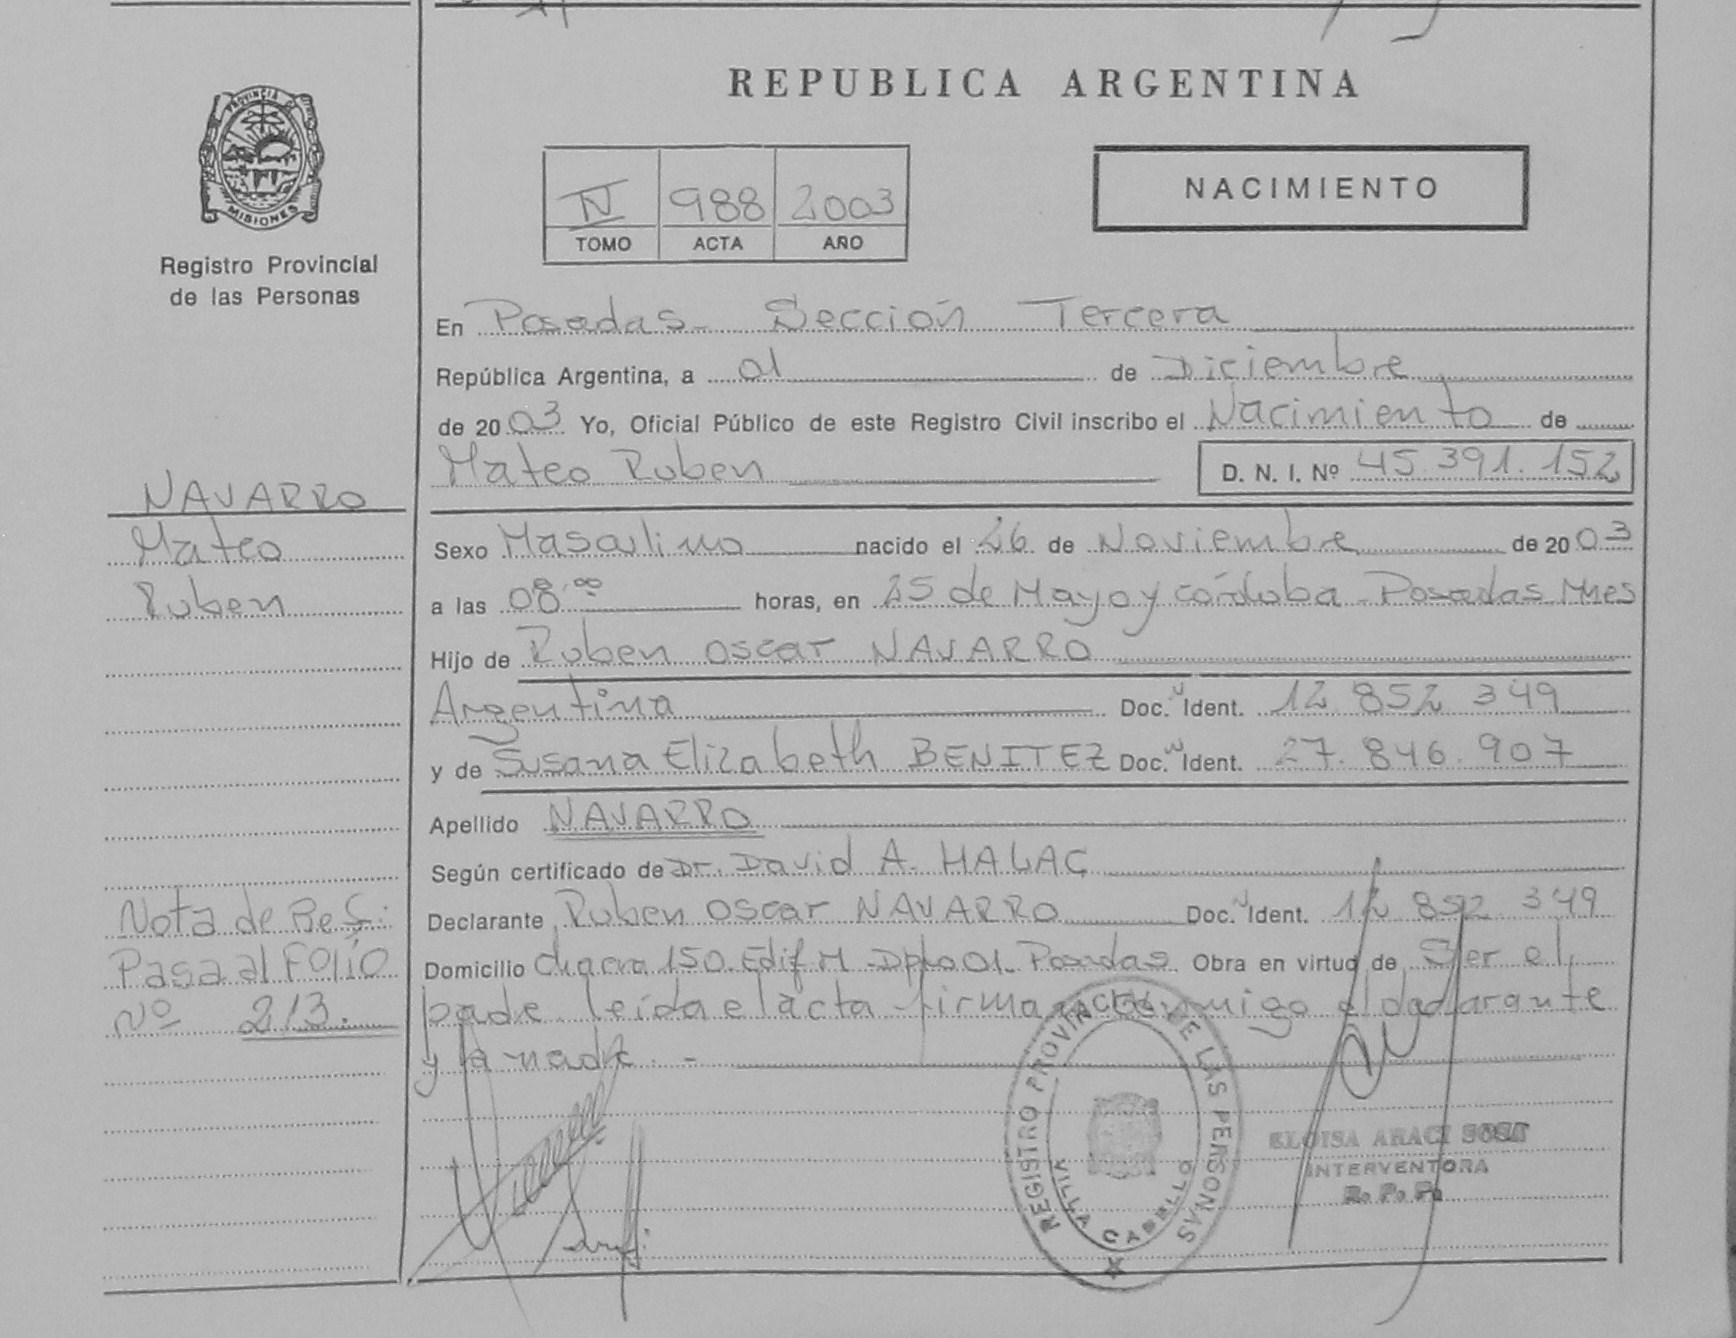 REPUBLICA ARGENTINA
PROVINCIA D
MISIONES
Registro Provincial
de las Personas
IV 988 2003
TOMO ACTA AÑO
NACIMIENTO
En Posadas - Sección Tercera
República Argentina, a 01 de Diciembre
de 2003 Yo, Oficial Público de este Registro Civil inscribo el Nacimiento de
Mateo Ruben D. N. I. Nº 45.391.152
NAVARRO
Mateo
Ruben
Sexo Masculino nacido el 26 de Noviembre de 2003
a las 08:00 horas, en 25 de Mayo y Córdoba - Posadas Mnes
Hijo de Ruben Oscar NAVARRO
Argentina Doc. N Ident. 12 852 349
y de Susana Elizabeth BENITEZ Doc. N Ident. 27.846.907
Apellido NAVARRO
Según certificado de Dr. David A. HALAC
Declarante Ruben Oscar NAVARRO Doc. N Ident. 12 852 349
Domicilio chacra 150 - Edif M Dpto 01 - Posadas Obra en virtud de Ser el
padre. leída el acta firma conmigo el declarante
y la madre. -
Nota de Ref:
Pasa al Folio
Nº 213.
REGISTRO PROVINCIAL DE LAS PERSONAS
VILLA CABELLO
ELOISA ARACI SOSA
INTERVENTORA
R. P. P.